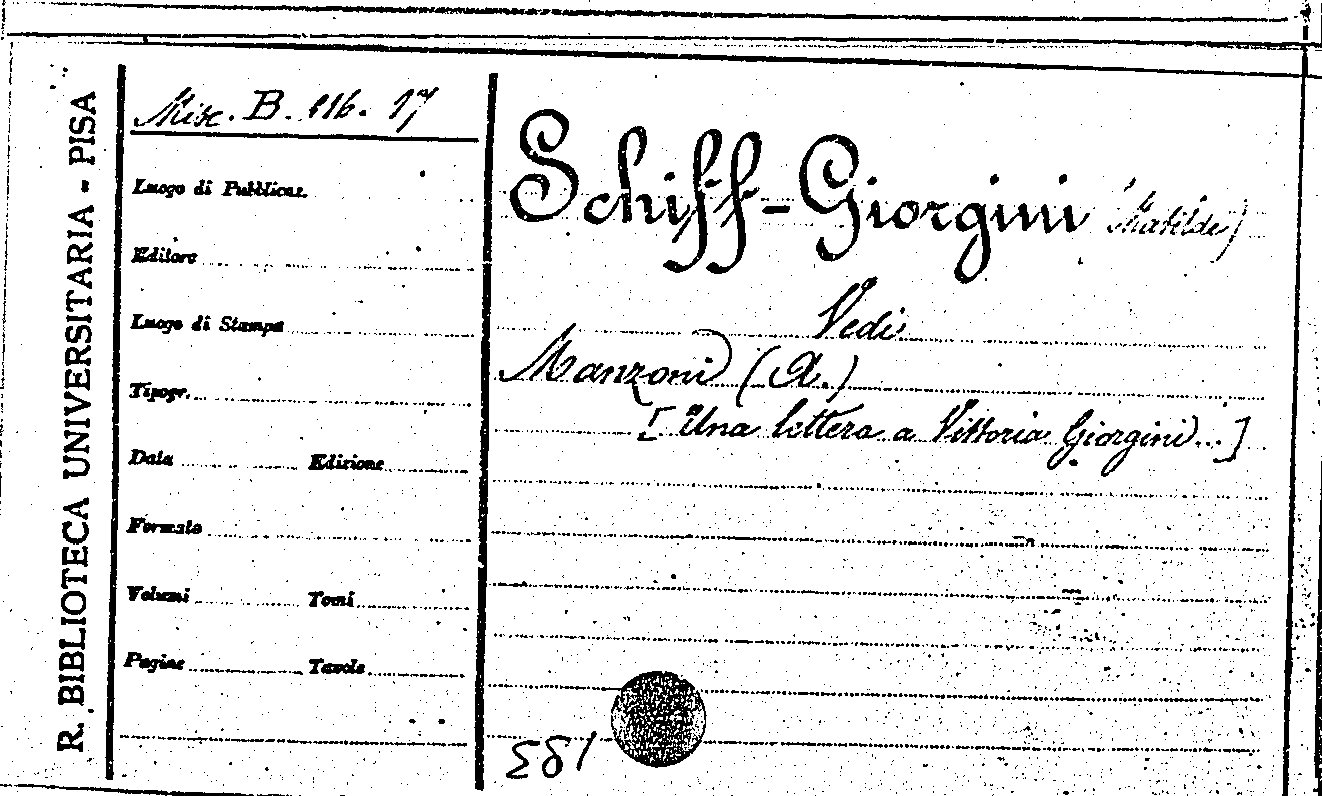 R. BIBLIOTECA UNIVERSITARIA - PISA
Misc. B. 116. 17
Luogo di Pubblicaz.
Editore
Luogo di Stampa
Tipogr.
Data Edizione
Formato
Volumi Tomi
Pagine Tavole
Schiff-Giorgini (Matilde)
Vedi
Manzoni (A.)
[Una lettera a Vittoria Giorgini...]